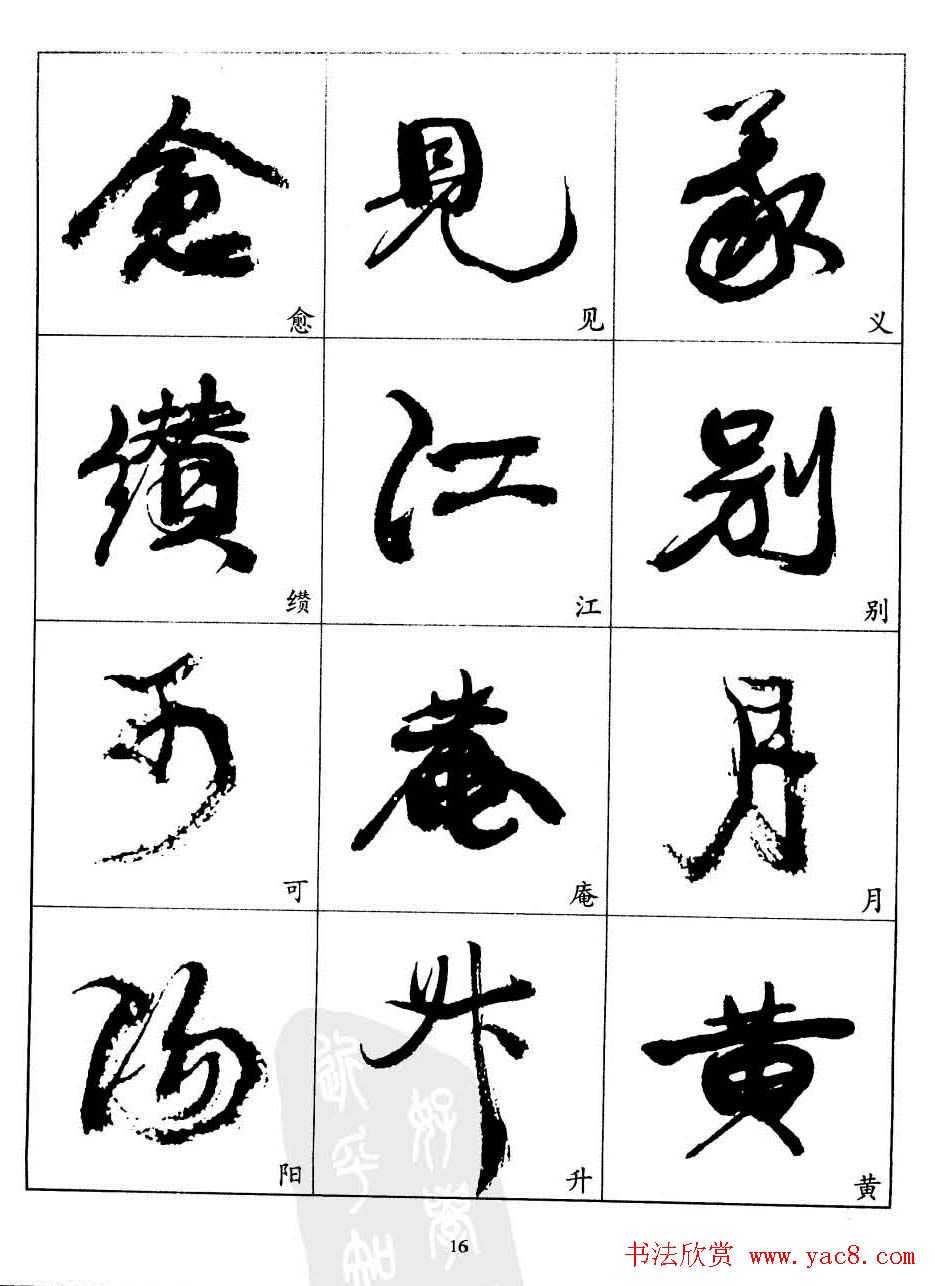 愈 見 義
愈 见 义
纉 江 别
缵 江 别
可 菴 月
可 庵 月
陽 升 黄
阳 升 黄
16
书法欣赏 www.yac8.com